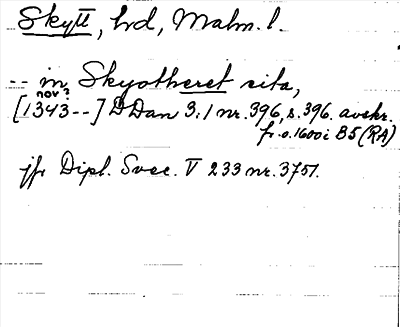 Skytt, hd, Malm. l.
-- in Skyotheret sita,
nov?
[1343--] DDan 3:1 nr. 396, s. 396. avskr.
fr. o. 1600 i B5 (RA)
jfr Dipl. Svec. V 233 nr. 3751.